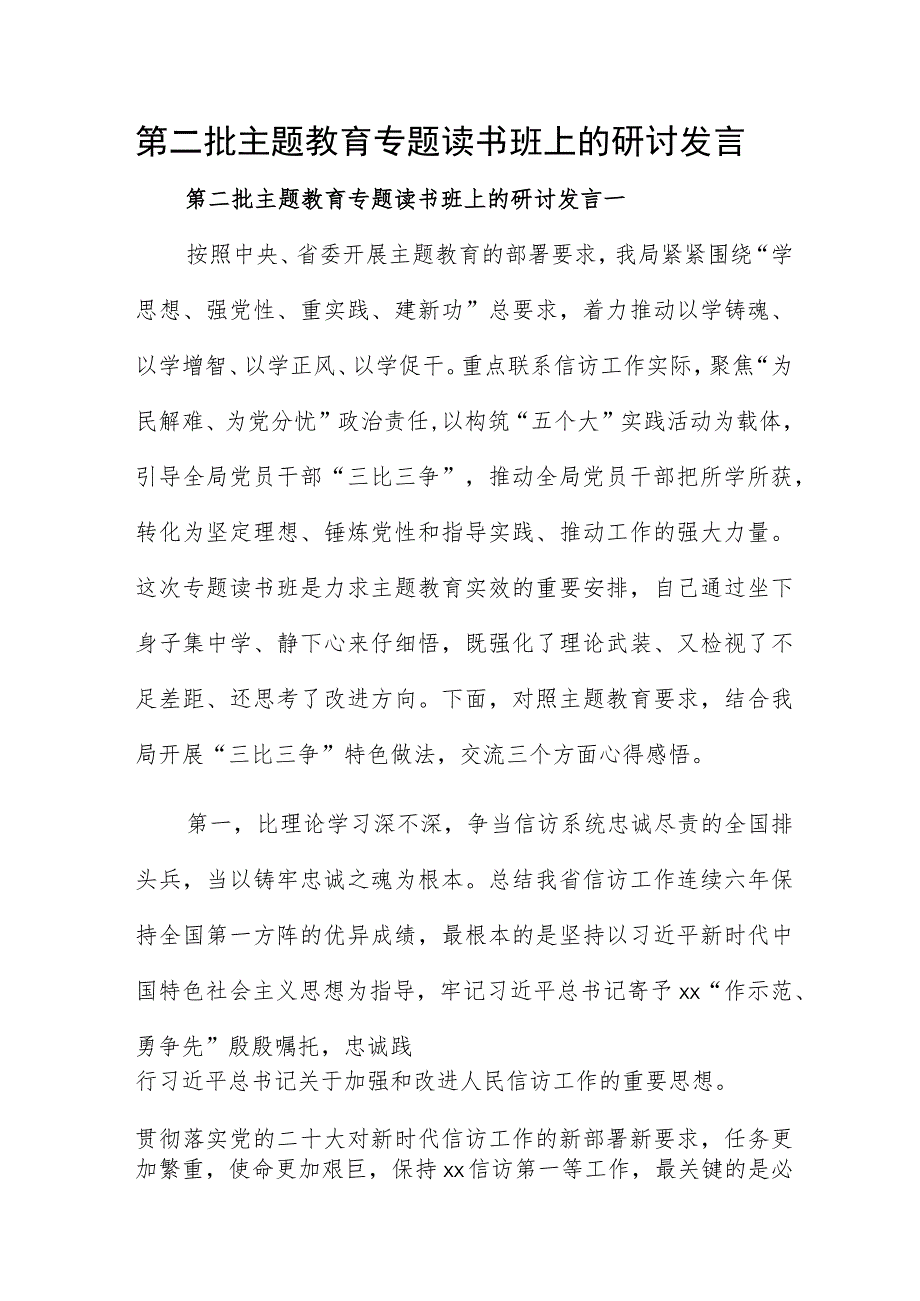 第二批主题教育专题读书班上的研讨发言
第二批主题教育专题读书班上的研讨发言一
按照中央、省委开展主题教育的部署要求，我局紧紧围绕“学
思想、强党性、重实践、建新功”总要求，着力推动以学铸魂、
以学增智、以学正风、以学促干。重点联系信访工作实际，聚焦“为
民解难、为党分忧”政治责任,以构筑“五个大”实践活动为载体，
引导全局党员干部“三比三争”，推动全局党员干部把所学所获，
转化为坚定理想、锤炼党性和指导实践、推动工作的强大力量。
这次专题读书班是力求主题教育实效的重要安排，自己通过坐下
身子集中学、静下心来仔细悟，既强化了理论武装、又检视了不
足差距、还思考了改进方向。下面，对照主题教育要求，结合我
局开展“三比三争”特色做法，交流三个方面心得感悟。
第一，比理论学习深不深，争当信访系统忠诚尽责的全国排
头兵，当以铸牢忠诚之魂为根本。总结我省信访工作连续六年保
持全国第一方阵的优异成绩，最根本的是坚持以习近平新时代中
国特色社会主义思想为指导，牢记习近平总书记寄予xx“作示范、
勇争先”殷殷嘱托，忠诚践
行习近平总书记关于加强和改进人民信访工作的重要思想。
贯彻落实党的二十大对新时代信访工作的新部署新要求，任务更
加繁重，使命更加艰巨，保持xx信访第一等工作，最关键的是必